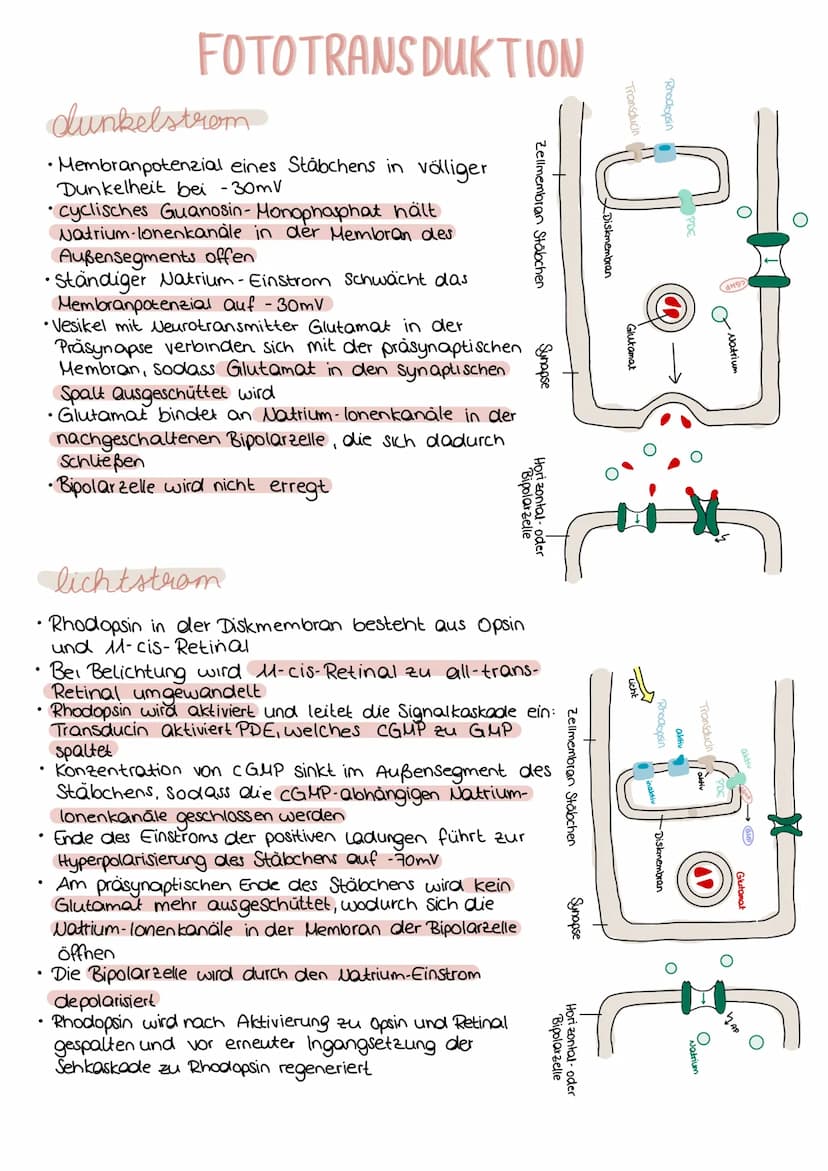 FOTOTRANSDUKTION
dunkelstrom
• Membranpotenzial eines Stäbchens in völliger
Dunkelheit bei -30mV
• cyclisches Guanosin-Monophosphat hält
Natrium-Ionenkanäle in der Membran des
Außensegments offen
• Ständiger Natrium-Einstrom schwächt das
Membranpotenzial auf -30mV
• Vesikel mit Neurotransmitter Glutamat in der
Präsynapse verbinden sich mit der präsynaptischen
Membran, sodass Glutamat in den synaptischen
Spalt ausgeschüttet wird
• Glutamat bindet an Natrium-Ionenkanäle in der
nachgeschaltenen Bipolarzelle, die sich dadurch
schließen
• Bipolarzelle wird nicht erregt
Zellmembran Stäbchen
Synapse
Horizontal- oder
Bipolarzelle
Transducin
Rhodopsin
PDE
Diskmembran
cGMP
Glutamat
Natrium
lichtstrom
• Rhodopsin in der Diskmembran besteht aus Opsin
und 11-cis-Retinal
• Bei Belichtung wird 11-cis-Retinal zu all-trans-
Retinal umgewandelt
• Rhodopsin wird aktiviert und leitet die Signalkaskade ein:
Transducin aktiviert PDE, welches cGMP zu GMP
spaltet
• Konzentration von cGMP sinkt im Außensegment des
Stäbchens, sodass die cGMP-abhängigen Natrium-
Ionenkanäle geschlossen werden
• Ende des Einstroms der positiven Ladungen führt zur
Hyperpolarisierung des Stäbchens auf -70mV
• Am präsynaptischen Ende des Stäbchens wird kein
Glutamat mehr ausgeschüttet, wodurch sich die
Natrium-Ionenkanäle in der Membran der Bipolarzelle
öffnen
• Die Bipolarzelle wird durch den Natrium-Einstrom
depolarisiert
• Rhodopsin wird nach Aktivierung zu Opsin und Retinal
gespalten und vor erneuter Ingangsetzung der
Sehkaskade zu Rhodopsin regeneriert
Zellmembran Stäbchen
Synapse
Horizontal- oder
Bipolarzelle
Licht
Rhodopsin
aktiv
Transducin
aktiv
PDE
aktiv
inaktiv
GMP
Diskmembran
Glutamat
AP
Natrium